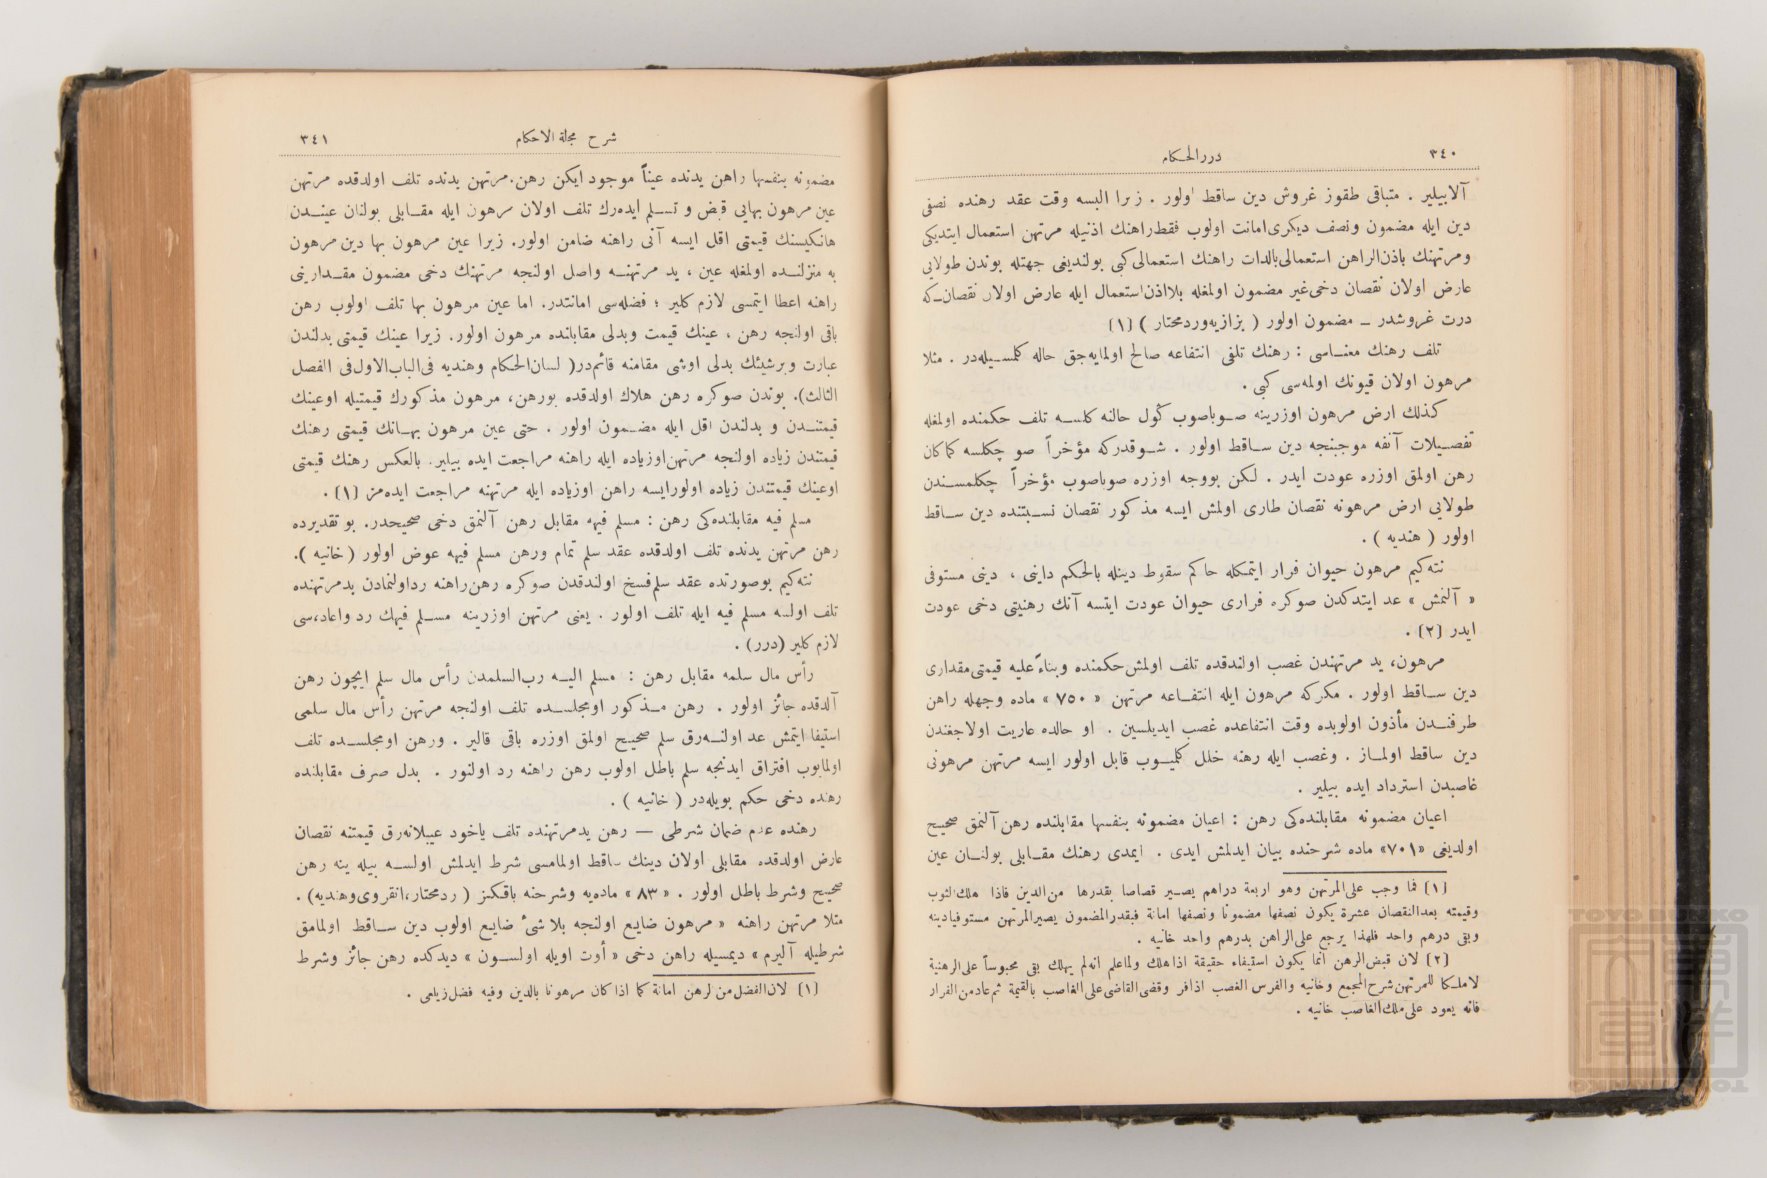 ٣٤٠
درر الحكام
آلابيلير . متباقى طقوز غروش دين ساقط اولور . زيرا البسه وقت عقد رهنده نصفى
دين ايله مضمون ونصف ديكرى امانت اولوب فقط راهنك اذنيله مرتهن استعمال ايتديكى
ومرتهنك باذن الراهن استعمالى بالذات راهنك استعمالى كبى بولنديغى جهتله بوندن طولايى
عارض اولان نقصان دخى غير مضمون اولمغله بلا اذن استعمال ايله عارض اولان نقصان ـ كه
درت غروشدر ـ مضمون اولور ( بزازيه وردمحتار ) [١]
تلف رهنك معناسى : رهنك تلفى انتفاعه صالح اولمايه جق حاله كلمسيله در . مثلا
مرهون اولان قيونك اولمه سى كبى .
كذلك ارض مرهون اوزرينه صوباصوب كول حالنه كلسه تلف حكمنده اولمغله
تفصيلات آنفه موجبنجه دين ساقط اولور . شوقدركه مؤخراً صو چكلسه كماكان
رهن اولمق اوزره عودت ايدر . لكن بووجه اوزره صوباصوب مؤخراً چكلمسندن
طولايى ارض مرهونه نقصان طارى اولمش ايسه مذكور نقصان نسبتنده دين ساقط
اولور ( هنديه ) .
نته كيم مرهون حيوان فرار ايتمكله حاكم سقوط دينله بالحكم داينى ، دينى مستوفى
« آلنمش » عد ايتدكدن صوكره فرارى حيوان عودت ايتسه آنك رهنيتى دخى عودت
ايدر [٢] .
مرهون، يد مرتهندن غصب اولندقده تلف اولمش حكمنده وبناءً عليه قيمتى مقدارى
دين ساقط اولور . مكركه مرهون ايله انتفاعه مرتهن « ٧٥٠ » ماده وجهله راهن
طرفندن مأذون اولوبده وقت انتفاعده غصب ايديلسين . او حالده عاريت اولاجغندن
دين ساقط اولماز . وغصب ايله رهنه خلل كلميوب قابل اولور ايسه مرتهن مرهونى
غاصبدن استرداد ايده بيلير .
اعيان مضمونه مقابلنده كى رهن : اعيان مضمونه بنفسها مقابلنده رهن آلنمق صحيح
اولديغى «٧٠١» ماده شرحنده بيان ايدلمش ايدى . ايمدى رهنك مقابلى بولنان عين
[١] فما وجب على المرتهن وهو اربعة دراهم يصير قصاصا بقدرها من الدين فاذا هلك الثوب
وقيمته بعد النقصان عشرة يكون نصفها مضمونا ونصفها امانة فبقدر المضمون يصير المرتهن مستوفيا دينه
وبقى درهم واحد فلهذا يرجع على الراهن بدرهم واحد خانيه .
[٢] لان قبض الرهن انما يكون استيفاء حقيقة اذا هلك ولما علم انه لم يهلك بقى محبوساً على الرهنية
لاملكا للمرتهن شرح المجمع وخانيه والفرس الغصب اذا فر وقضى القاضى على الغاصب بالقيمة ثم عاد من الفرار
فانه يعود على ملك الغاصب خانيه .
شرح مجلة الاحكام
٣٤١
مضمونه بنفسها راهن يدنده عيناً موجود ايكن رهن، مرتهن يدنده تلف اولدقده مرتهن
عين مرهون بهايى قبض و تسلم ايده رك تلف اولان مرهون ايله مقابلى بولنان عيندن
هانكيسنك قيمتى اقل ايسه آنى راهنه ضامن اولور. زيرا عين مرهون بها دين مرهون
به منزلنده اولمغله عين ، يد مرتهنه واصل اولنجه مرتهنك دخى مضمون مقدارينى
راهنه اعطا ايتمسى لازم كلير ؛ فضله سى امانتدر. اما عين مرهون بها تلف اولوب رهن
باقى اولنجه رهن ، عينك قيمت وبدلى مقابلنده مرهون اولور. زيرا عينك قيمتى بدلندن
عبارت وبرشيئك بدلى اوشى مقامنه قائمدر( لسان الحكام وهنديه فى الباب الاول فى الفصل
الثالث). بوندن صوكره رهن هلاك اولدقده بورهن، مرهون مذكورك قيمتيله اوعينك
قيمتندن و بدلندن اقل ايله مضمون اولور . حتى عين مرهون بهانك قيمتى رهنك
قيمتندن زياده اولنجه مرتهن اوزياده ايله راهنه مراجعت ايده بيلير. بالعكس رهنك قيمتى
اوعينك قيمتندن زياده اولورايسه راهن اوزياده ايله مرتهنه مراجعت ايده مز [١] .
مسلم فيه مقابلنده كى رهن : مسلم فيه مقابل رهن آلنمق دخى صحيحدر. بو تقديرده
رهن مرتهن يدنده تلف اولدقده عقد سلم تمام ورهن مسلم فيهه عوض اولور ( خانيه ).
نته كيم بوصورتده عقد سلم فسخ اولندقدن صوكره رهن راهنه رد اولنمادن يد مرتهنده
تلف اولسه مسلم فيه ايله تلف اولور . يعنى مرتهن اوزرينه مسلم فيهك رد واعاده سى
لازم كلير (درر) .
رأس مال سلمه مقابل رهن : مسلم اليه رب السلمدن رأس مال سلم ايچون رهن
آلدقده جائز اولور . رهن مذكور اومجلسده تلف اولنجه مرتهن رأس مال سلمى
استيفا ايتمش عد اولنه رق سلم صحيح اولمق اوزره باقى قالير . ورهن اومجلسده تلف
اولمايوب افتراق ايدنجه سلم باطل اولوب رهن راهنه رد اولنور . بدل صرف مقابلنده
رهنده دخى حكم بويله در ( خانيه ) .
رهنده عدم ضمان شرطى — رهن يد مرتهنده تلف ياخود عيبلانه رق قيمتنه نقصان
عارض اولدقده مقابلى اولان دينك ساقط اولمامسى شرط ايدلمش اولسه بيله ينه رهن
صحيح وشرط باطل اولور . « ٨٣ » ماده يه وشرحنه باقكز ( ردمحتار، انقروى وهنديه) .
مثلا مرتهن راهنه « مرهون ضايع اولنجه بلا شئ ضايع اولوب دين ساقط اولمامق
شرطيله آليرم » ديمسيله راهن دخى « أوت اويله اولسون » ديدكده رهن جائز وشرط
[١] لان الفضل من الرهن امانة كما اذا كان مرهونا بالدين وفيه فضل زيلعى .
TOYO BUNKO